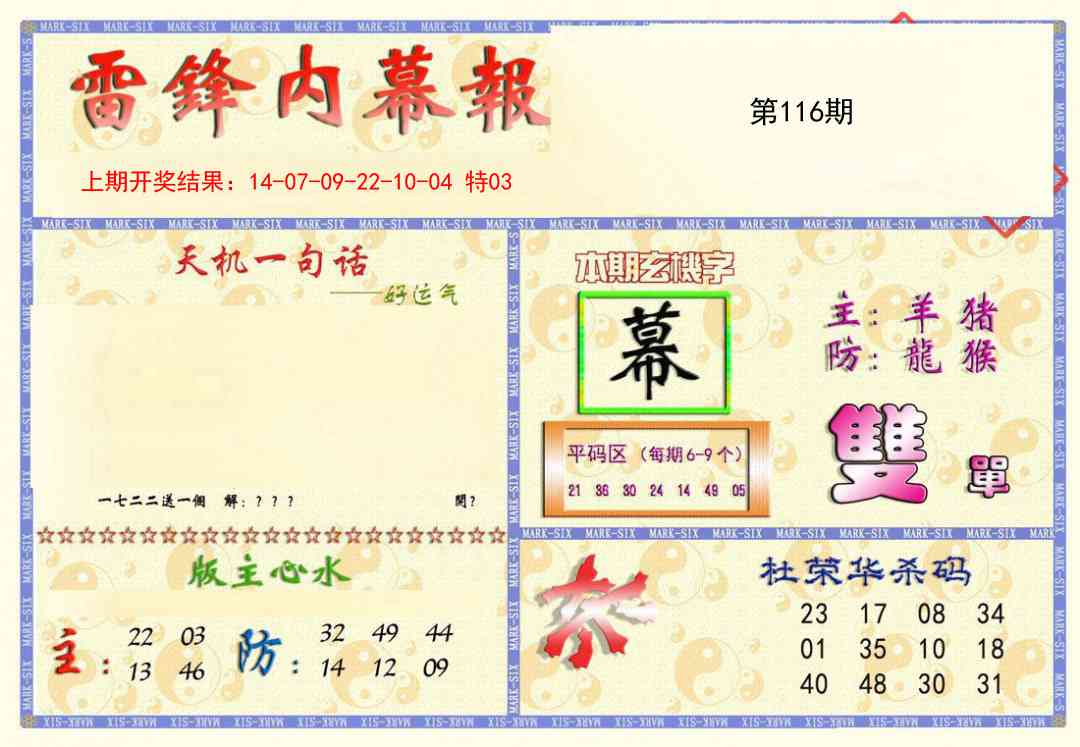 雷鋒内幕報
第116期
上期开奖结果：14-07-09-22-10-04 特03
天机一句话
——好运气
一七二二送一個 解：？？？ 開？
版主心水
主：22 03 13 46
防：32 49 44 14 12 09
本期玄機字
幕
主：羊 猪
防：龍 猴
雙 單
平码区（每期6-9个）
21 36 30 24 14 49 05
杀
杜荣华杀码
23 17 08 34
01 35 10 18
40 48 30 31
MARK-SIX